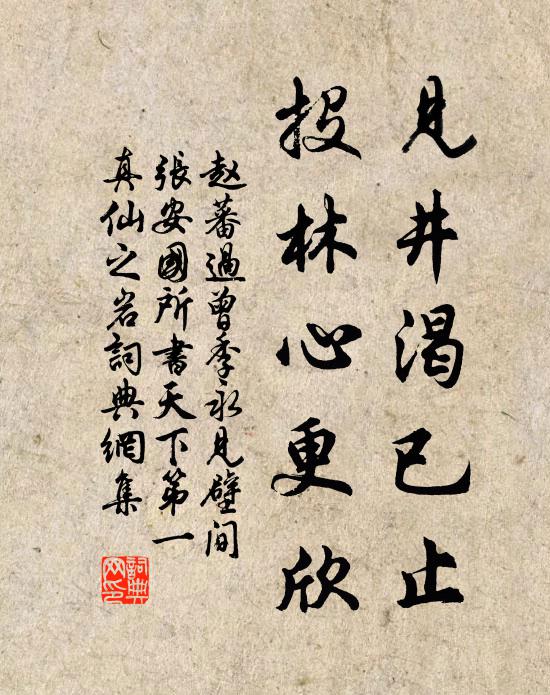 見井渴已止
投林心更欣
赵蕃過曾季永見壁间
張安國所書天下第一
真仙之岩詞典網集
詞典网印